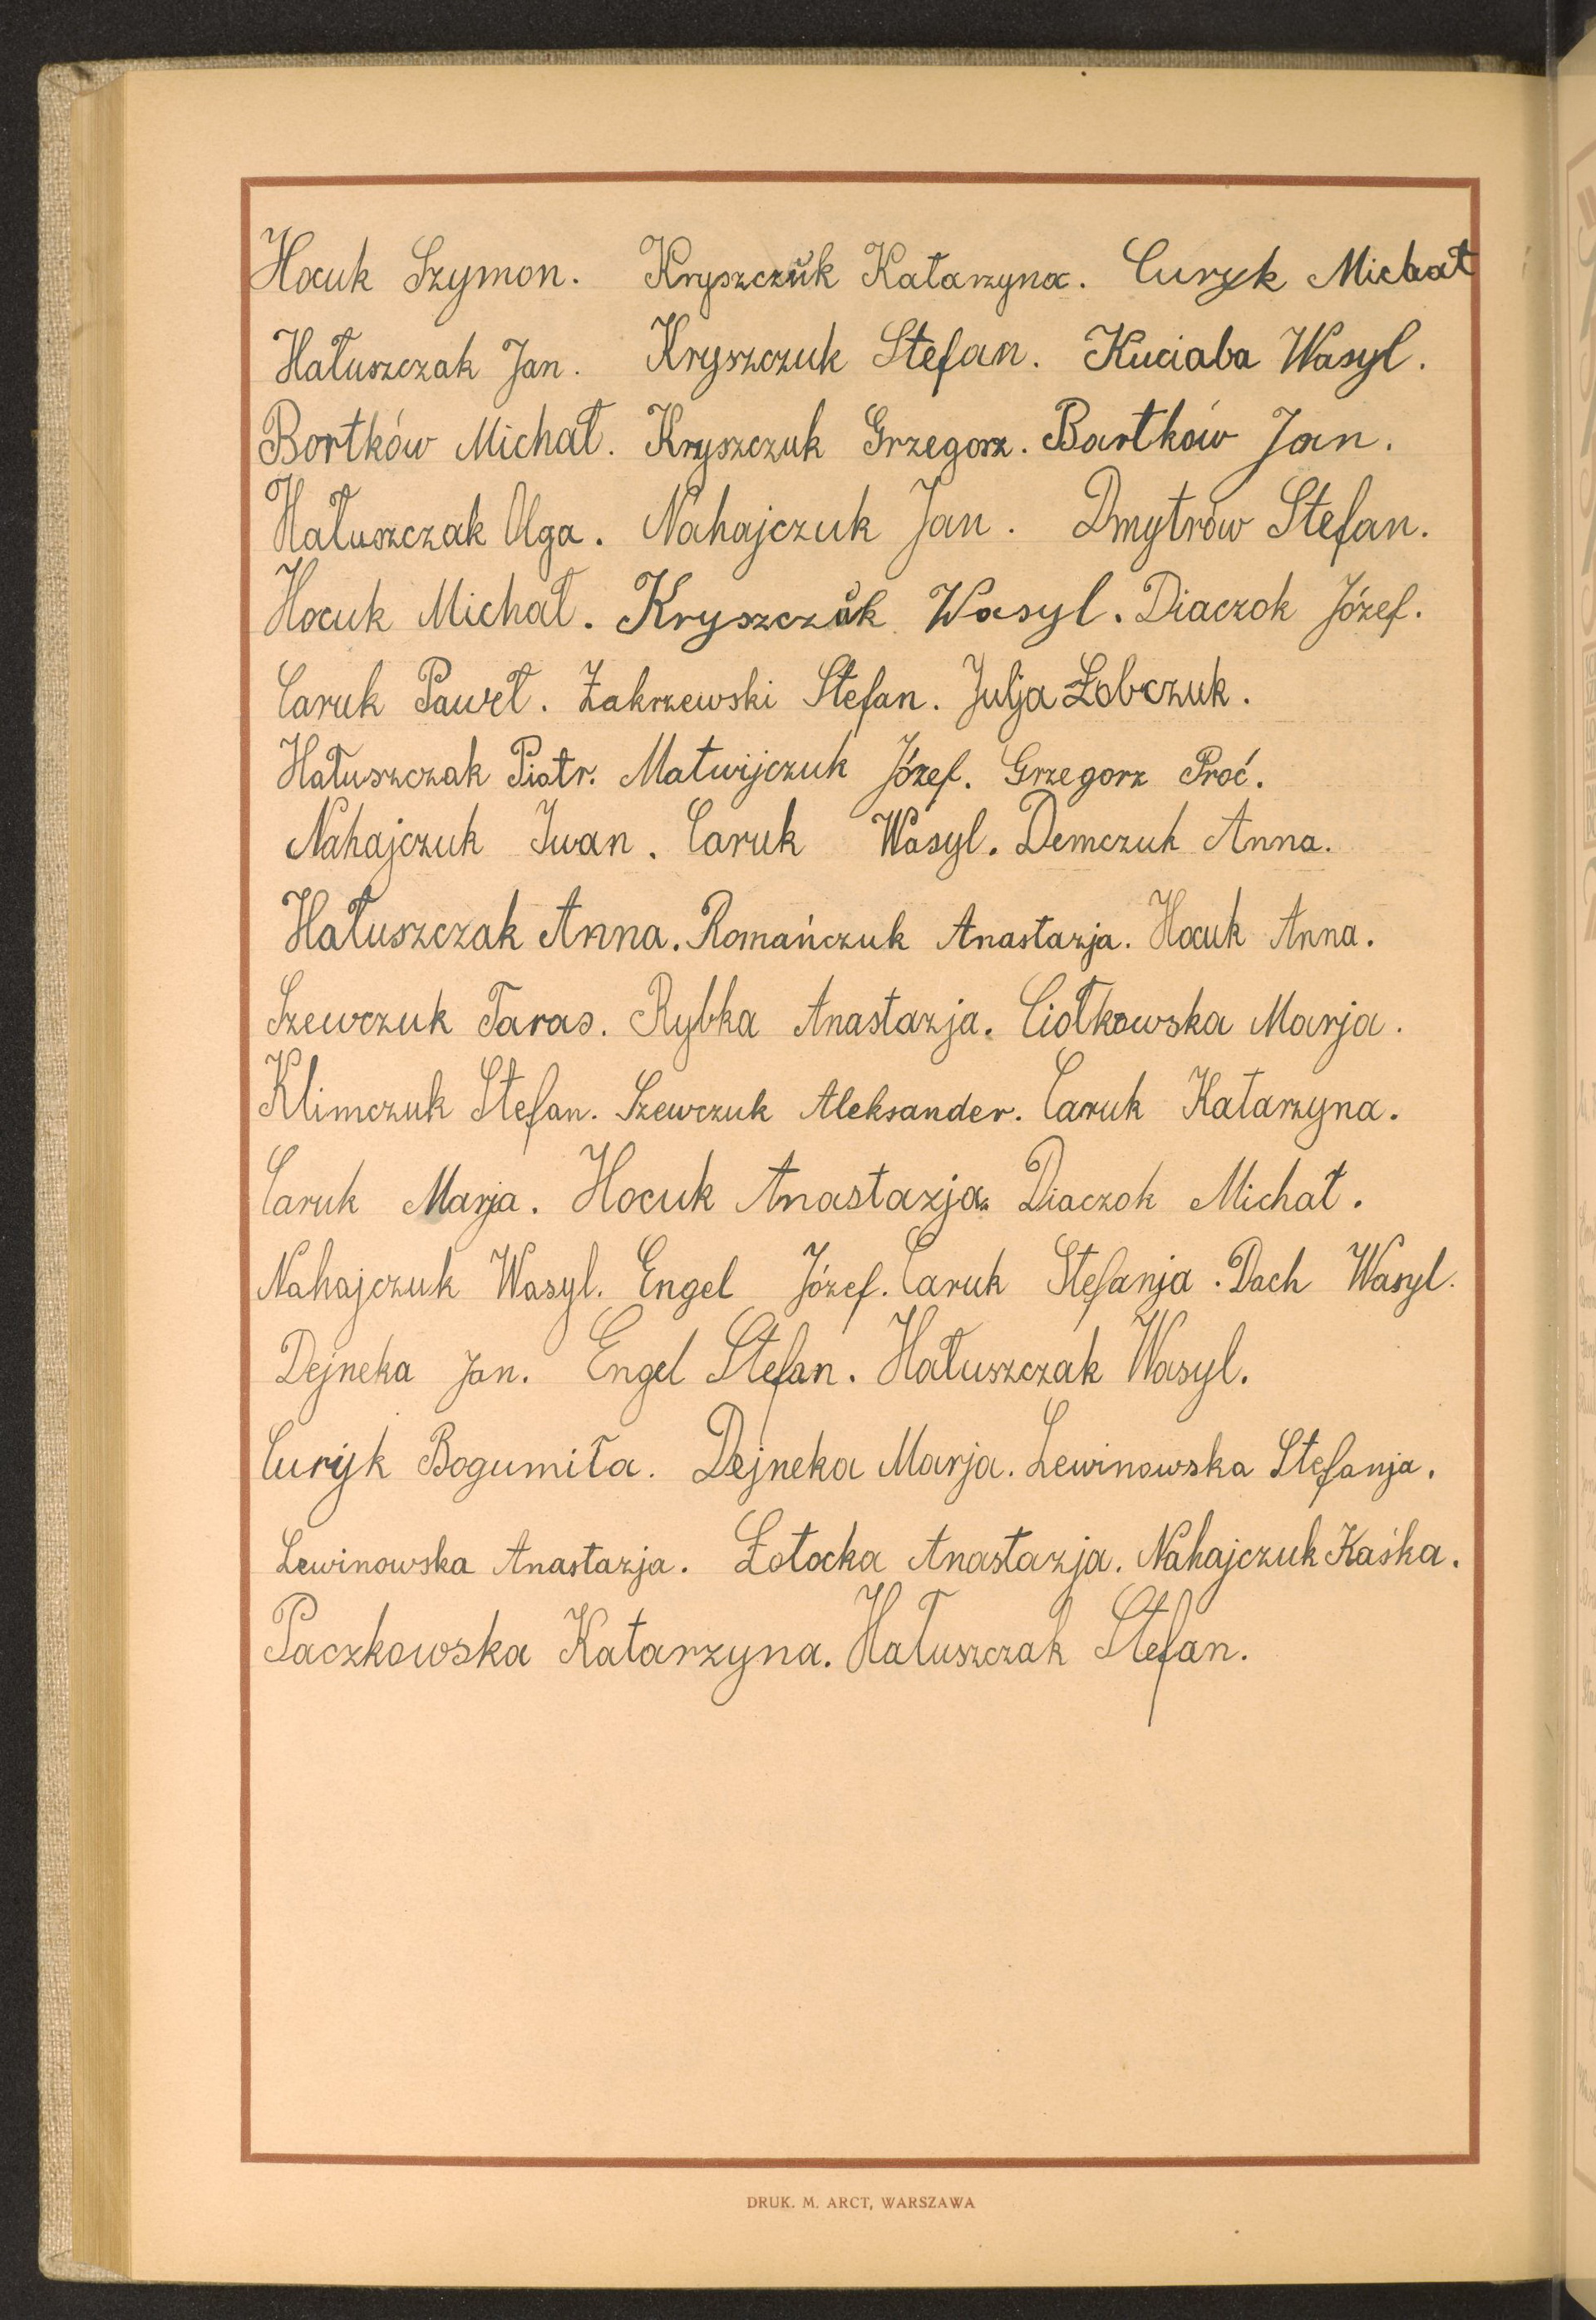 Hocuk Szymon. Kryszczŭk Katarzyna. Curyk Michał
Hałuszczak Jan. Kryszczuk Stefan. Kuciaba Wasyl.
Bortków Michał. Kryszczuk Grzegorz. Bartków Jan.
Hałuszczak Olga. Nahajczuk Jan. Dmytrów Stefan.
Hocuk Michał. Kryszczŭk Wasyl. Diaczok Józef.
Caruk Paweł. Zakrzewski Stefan. Julja Łobczuk.
Hałuszczak Piotr. Matwijczuk Józef. Grzegorz Proć.
Nahajczuk Iwan. Caruk Wasyl. Demczuk Anna.
Hałuszczak Anna. Romańczuk Anastazja. Hocuk Anna.
Szewczuk Taras. Rybka Anastazja. Ciołkowska Marja.
Klimczuk Stefan. Szewczuk Aleksander. Caruk Katarzyna.
Caruk Marja. Hocuk Anastazja. Diaczok Michał.
Nahajczuk Wasyl. Engel Józef. Caruk Stefanja. Dach Wasyl.
Dejneka Jan. Engel Stefan. Hałuszczak Wasyl.
Curyk Bogumiła. Dejneka Marja. Lewinowska Stefanja.
Lewinowska Anastazja. Łotocka Anastazja. Nahajczuk Kaśka.
Paczkowska Katarzyna. Hałuszczak Stefan.
DRUK. M. ARCT, WARSZAWA